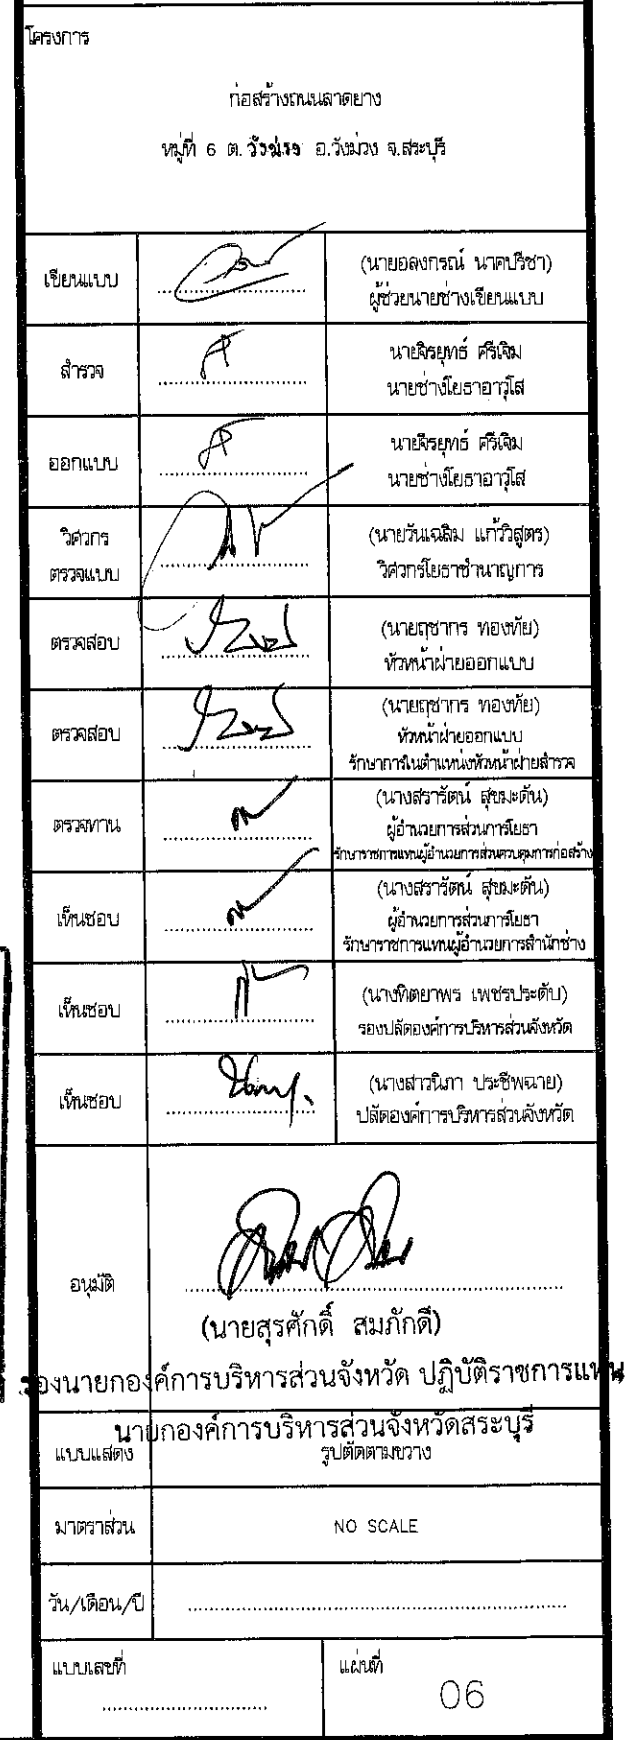 โครงการ
ก่อสร้างถนนลาดยาง
หมู่ที่ 6 ต.วังม่วง อ.วังม่วง จ.สระบุรี
เขียนแบบ
(นายอลงกรณ์ นาคปรีชา)
ผู้ช่วยนายช่างเขียนแบบ
สำรวจ
นายจิรยุทธ์ ศรีเจิม
นายช่างโยธาอาวุโส
ออกแบบ
นายจิรยุทธ์ ศรีเจิม
นายช่างโยธาอาวุโส
วิศวกร
ตรวจแบบ
(นายวันเฉลิม แก้ววิสูตร)
วิศวกรโยธาชำนาญการ
ตรวจสอบ
(นายฤชากร ทองทัย)
หัวหน้าฝ่ายออกแบบ
ตรวจสอบ
(นายฤชากร ทองทัย)
หัวหน้าฝ่ายออกแบบ
รักษาการในตำแหน่งหัวหน้าฝ่ายสำรวจ
ตรวจทาน
(นางสรารัตน์ สุขมะดัน)
ผู้อำนวยการส่วนการโยธา
รักษาราชการแทนผู้อำนวยการส่วนควบคุมการก่อสร้าง
เห็นชอบ
(นางสรารัตน์ สุขมะดัน)
ผู้อำนวยการส่วนการโยธา
รักษาราชการแทนผู้อำนวยการสำนักช่าง
เห็นชอบ
(นางทิตยาพร เพชรประดับ)
รองปลัดองค์การบริหารส่วนจังหวัด
เห็นชอบ
(นางสาวนิภา ประชีพฉาย)
ปลัดองค์การบริหารส่วนจังหวัด
อนุมัติ
(นายสุรศักดิ์ สมภักดี)
รองนายกองค์การบริหารส่วนจังหวัด ปฏิบัติราชการแทน
นายกองค์การบริหารส่วนจังหวัดสระบุรี
แบบแสดง
รูปตัดตามขวาง
มาตราส่วน
NO SCALE
วัน/เดือน/ปี
แบบเลขที่
แผ่นที่
06